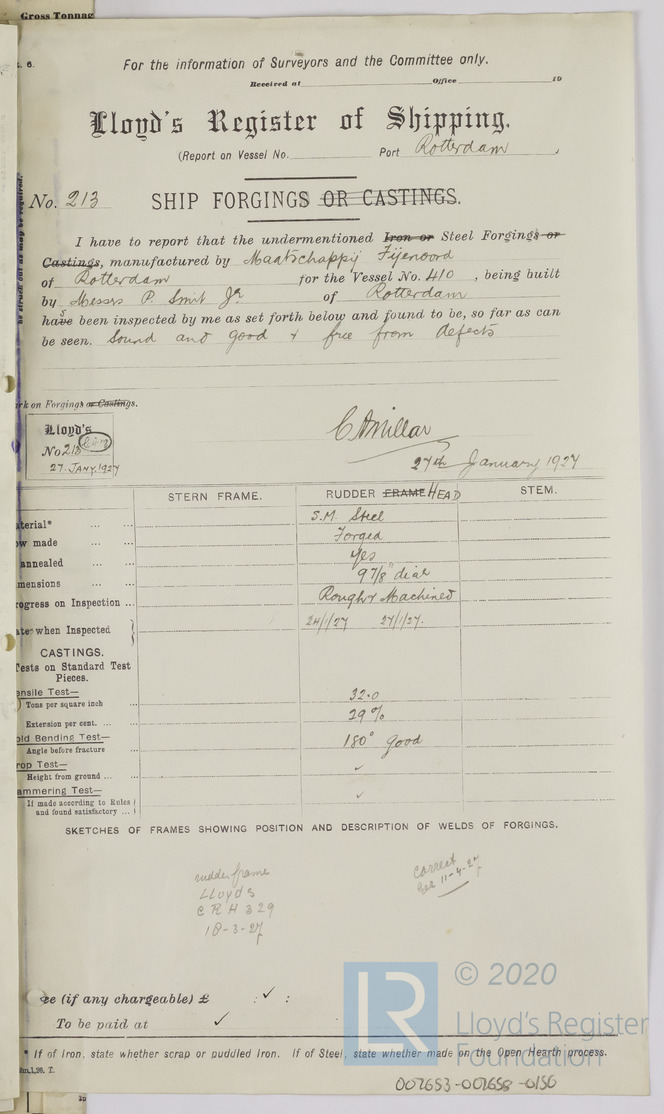 Gross Tonnag
s. 6.
For the information of Surveyors and the Committee only.
Received at Office 19
Lloyd's Register of Shipping.
(Report on Vessel No. Port Rotterdam
No. 213 SHIP FORGINGS OR CASTINGS.
be struck out as may be required.
I have to report that the undermentioned Iron or Steel Forgings or
Castings, manufactured by Maatschappij Fijenoord
of Rotterdam for the Vessel No. 410, being built
by Messrs P. Smit Jr of Rotterdam
has been inspected by me as set forth below and found to be, so far as can
be seen. Sound and good & free from defects
rk on Forgings or Castings.
Lloyd's
No 213
27. JANY. 1927
C A Millar
27th January 1927
STERN FRAME. RUDDER FRAME HEAD STEM.
aterial* ... ... S.M. Steel
ow made ... ... Forged
annealed ... ... Yes
mensions ... ... 9 7/8" dia
rogress on Inspection ... Rough & Machined
ate when Inspected 24/1/27 27/1/27.
CASTINGS.
Tests on Standard Test
Pieces.
ensile Test—
) Tons per square inch ... 32.0
Extension per cent. ... ... 29%
old Bending Test—
Angle before fracture ... 180° good
rop Test—
Height from ground ... ... ✓
ammering Test—
If made according to Rules
and found satisfactory ... ✓
SKETCHES OF FRAMES SHOWING POSITION AND DESCRIPTION OF WELDS OF FORGINGS.
rudder frame
LLOYDS
C R H 329
18-3-27
correct
11-4-27
ee (if any chargeable) £ : ✓ :
To be paid at ✓
LR
© 2020
Lloyd's Register
Foundation
* If of Iron, state whether scrap or puddled Iron. If of Steel, state whether made on the Open Hearth process.
m.1,26. T.
002653-002658-0156